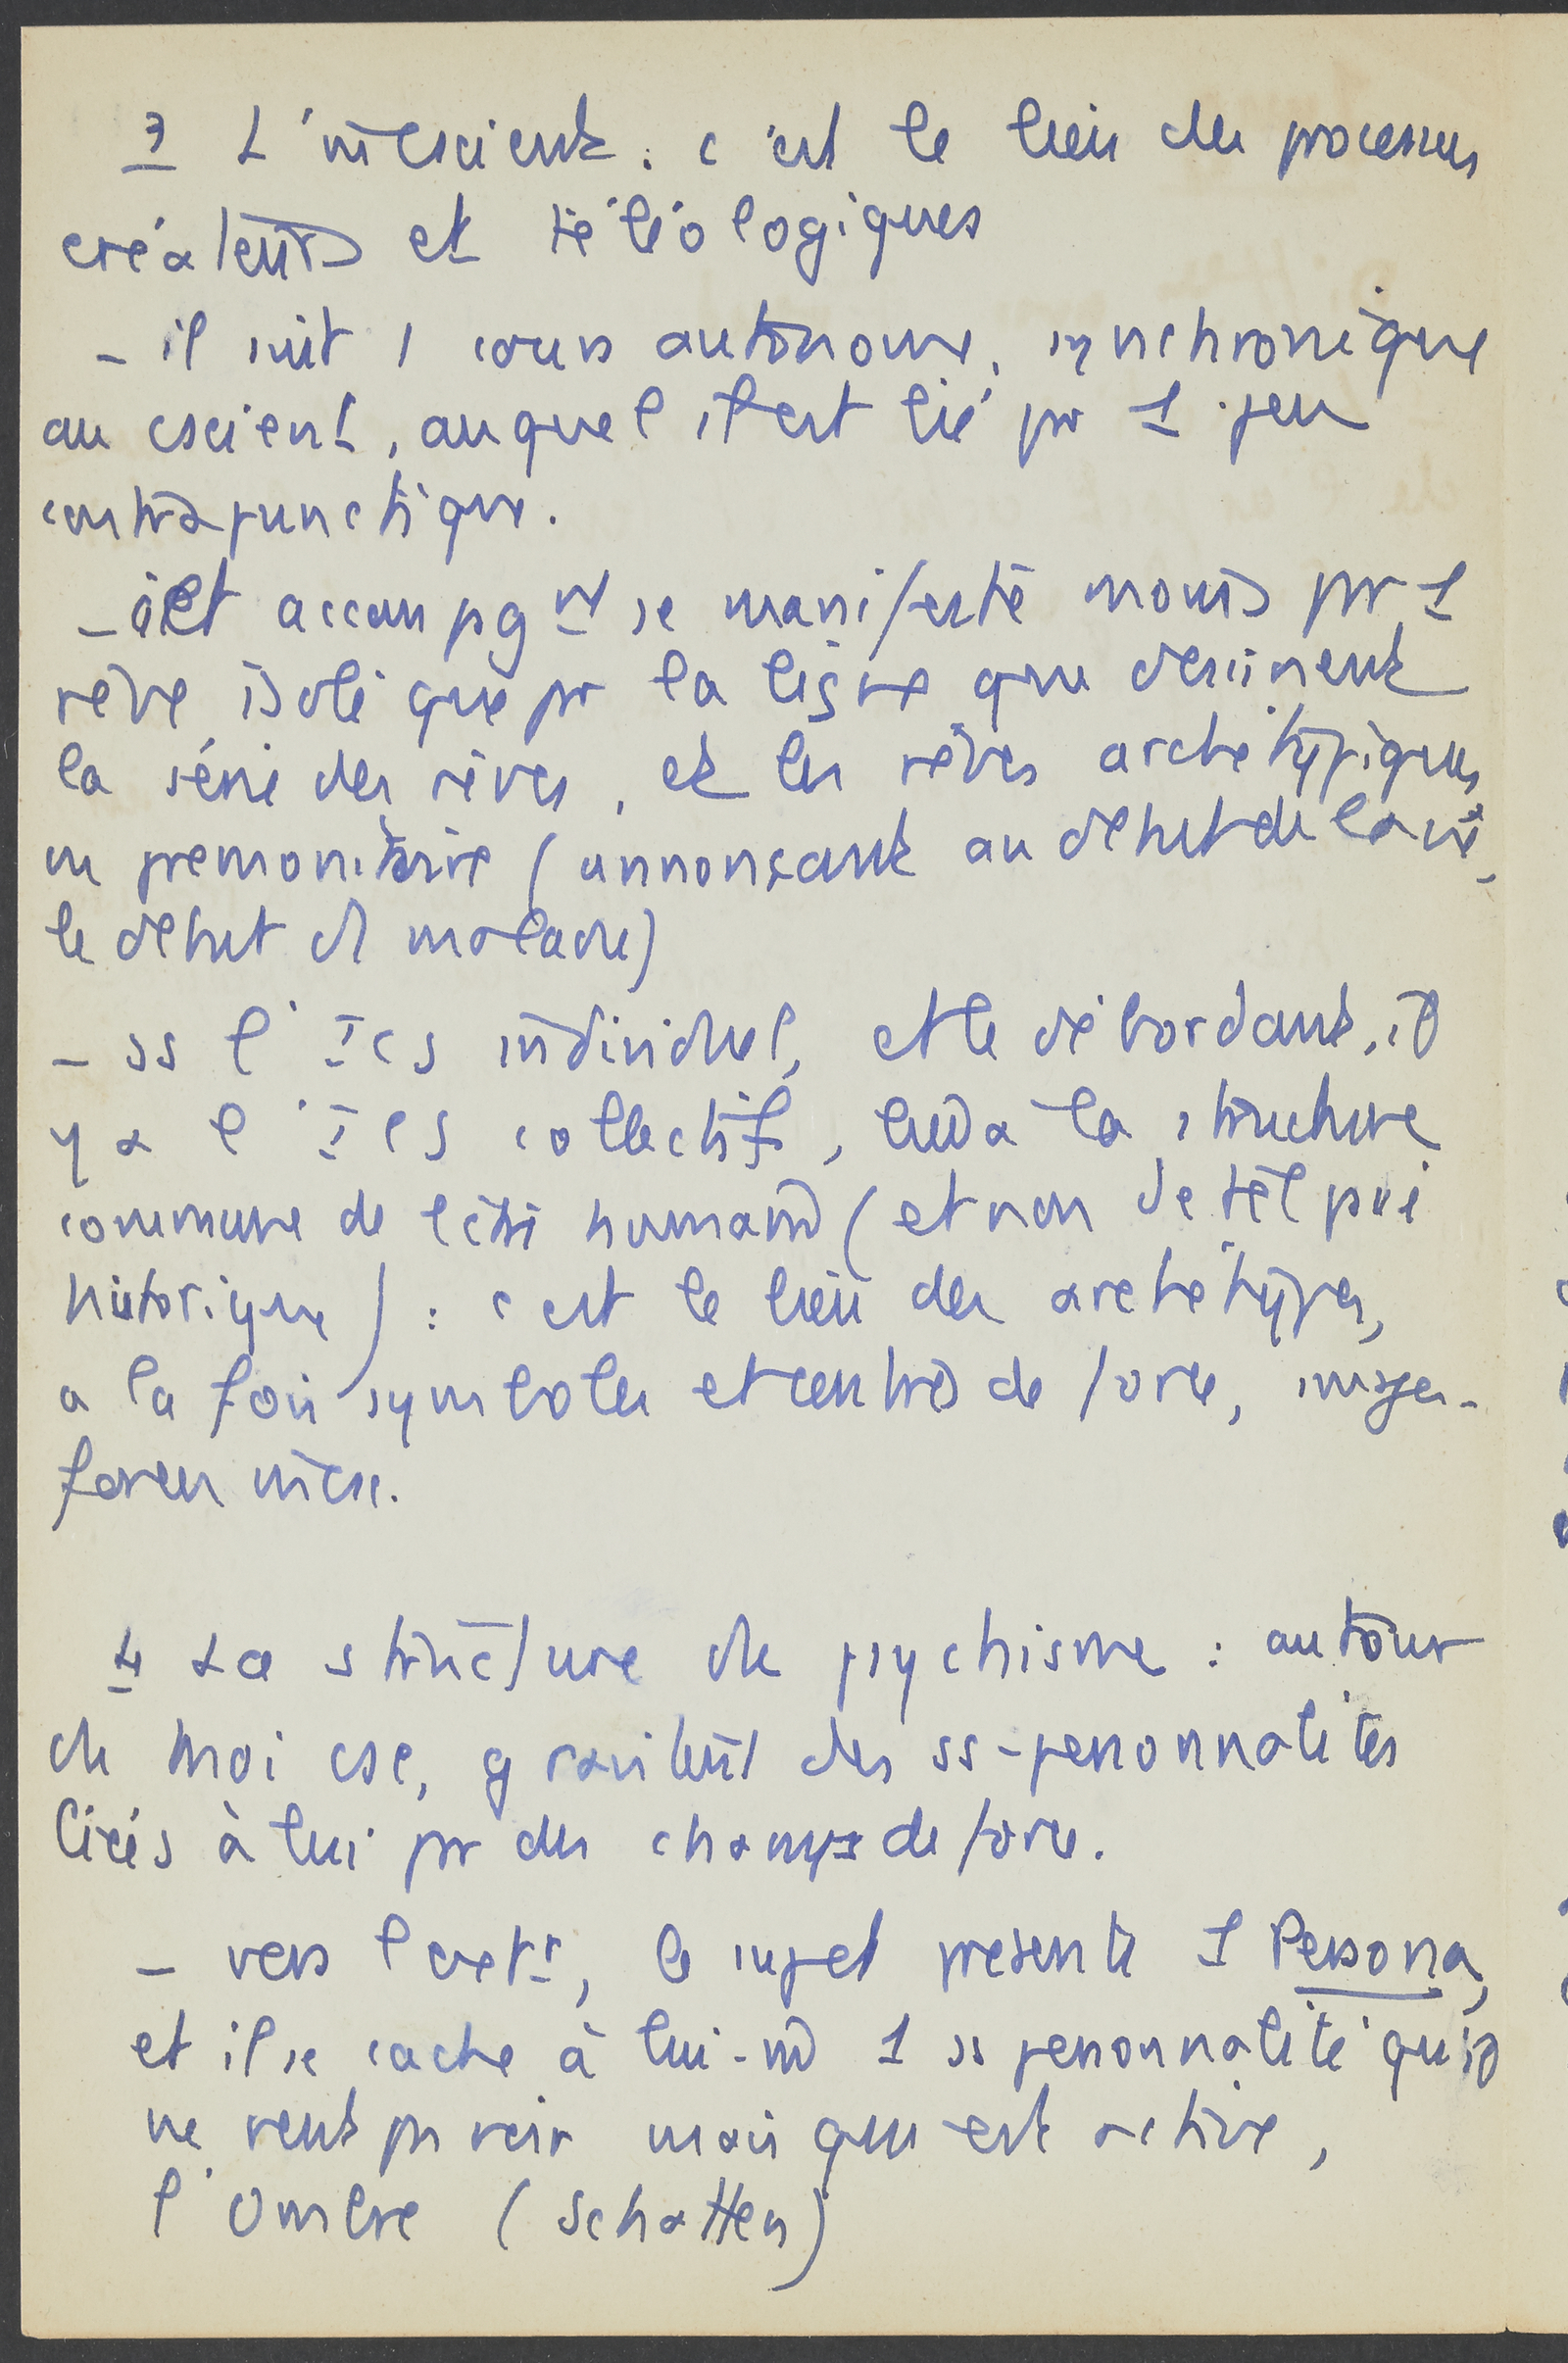 3 L'inconscient : c'est le lieu des processus
créateurs et téléologiques
- il suit 1 cours autonome, synchronique
au cscient, auquel il est lié pr 1 jeu
contrapunctique.
- cet accompgnt se manifeste moins pr 1
rêve isolé que pr la ligne que dessinent
la série des rêves, et les rêves archétypiques
ou premonitoire (annonçant au début de la vie,
le début d maladie)
- ss l'Ics individuel, et le débordant, il
y a l'Ics collectif, lié à la structure
commune de humain (et non de tel
historique) : c'est le lieu des archétypes,
a la fois symboles et centres de force, images-
forces incsc.
4 La structure du psychisme : autour
du moi csc, gravitent des ss-personnalités
liées à lui pr des champs de force.
- vers l'extr, le sujet présente 1 Persona,
et il se cache à lui-m 1 ss personnalité qu'il
ne veut pas voir mais qui est active,
l'Ombre (Schatten)